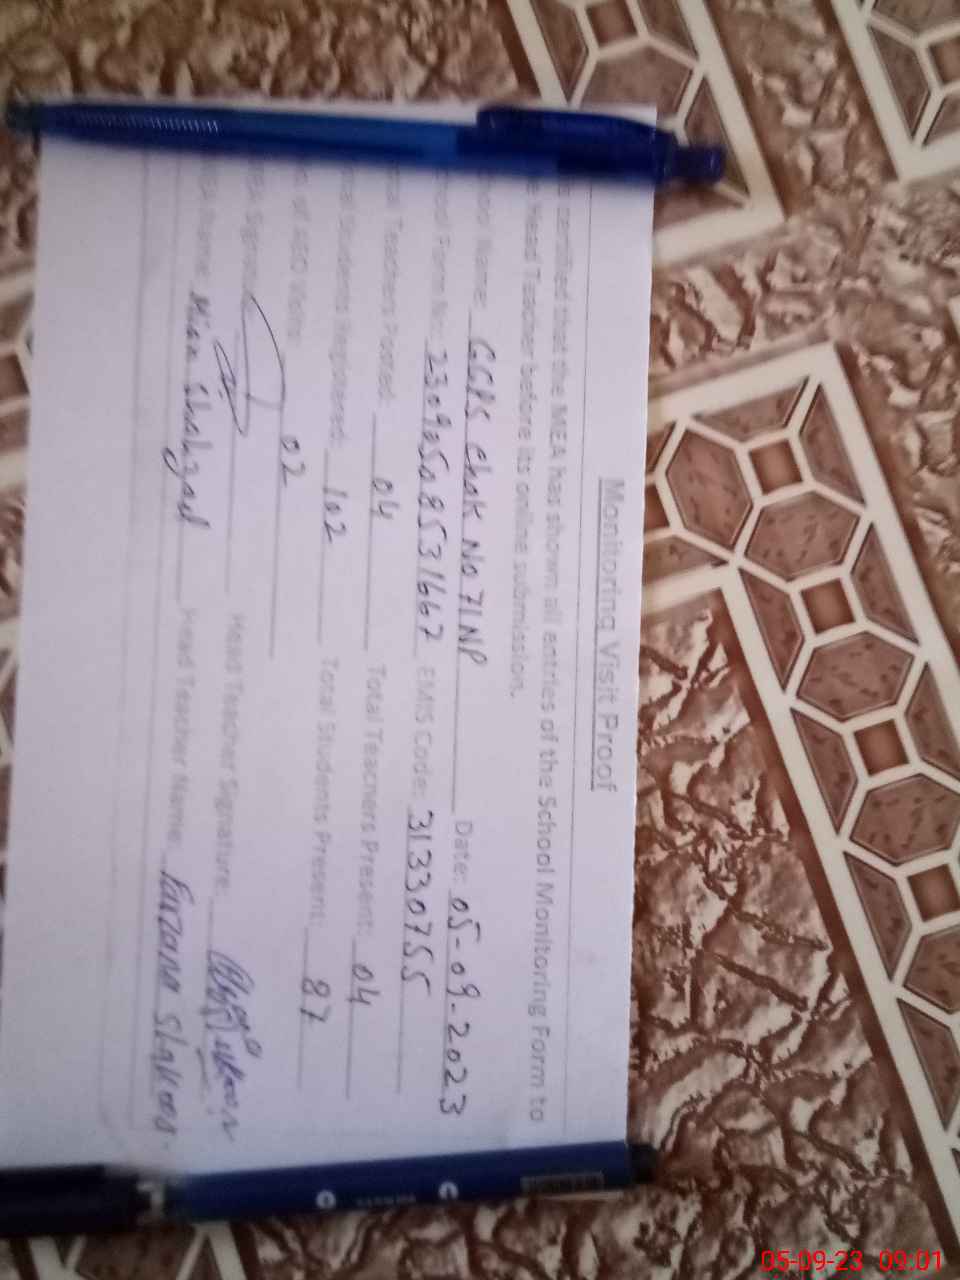 Monitoring Visit Proof
certified that the MEA has shown all entries of the School Monitoring Form to
Head Teacher before its online submission.
Name: GGPS Chak No 71NP Date: 05-09-2023
Form No: 23090508531667 EMIS Code: 31330755
Teachers Posted: 04 Total Teachers Present: 04
Students Registered: 102 Total Students Present: 87
of AEO Visits: 02
Signature Head Teacher Signature:
Name: Mian Shahzad Head Teacher Name: Farzana Shakoor
05-09-23 09:01